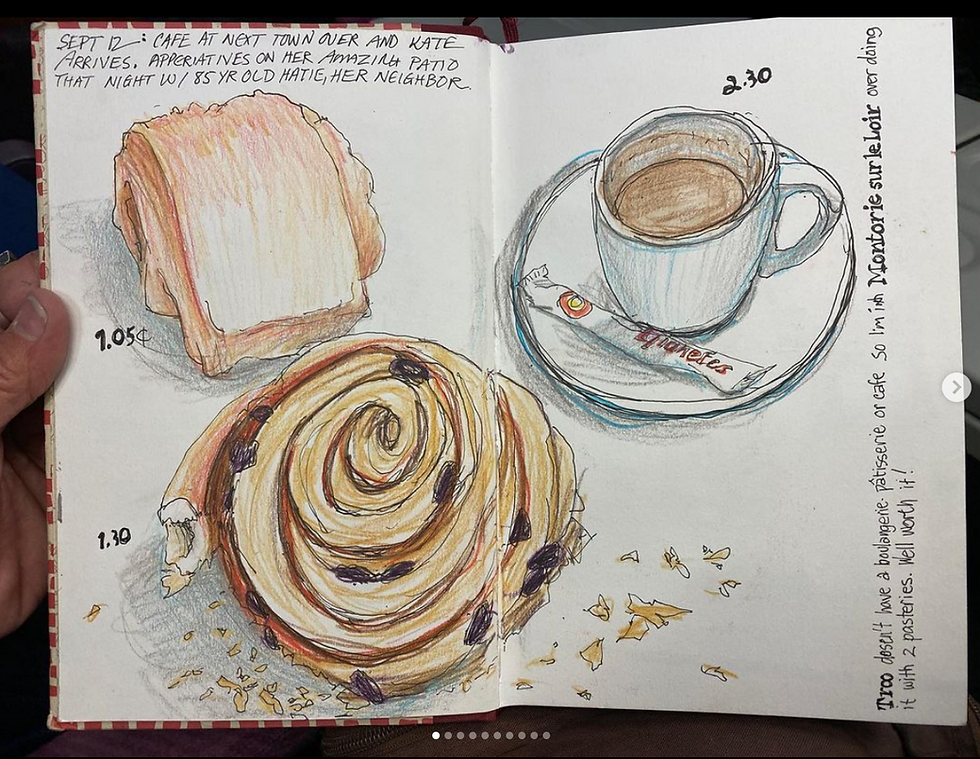 SEPT 12: CAFE AT NEXT TOWN OVER AND KATE
ARRIVES. APPERIATIVES ON HER AMAZING PATIO
THAT NIGHT W/ 85 YR OLD HATIE, HER NEIGHBOR.
1.05¢
1.30
2.30
Troo doesn't have a boulangerie, pâtisserie or cafe so I'm in Montorie sur le Loir over doing
it with 2 pasteries. Well worth it!